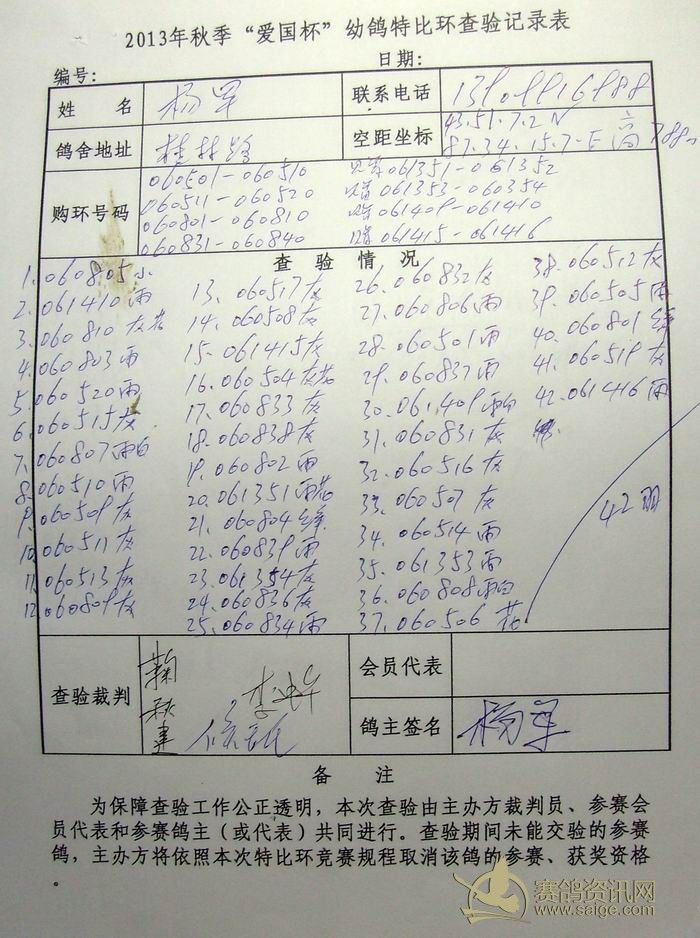 2013年秋季“爱国杯”幼鸽特比环查验记录表
编号: 日期:
姓 名 杨军 联系电话
鸽舍地址 桂林路 空距坐标 43.51.7.2N
87.34.15.7-E 高788m
购环号码
060501-060510 061351-061352
060511-060520 061353-060354
060801-060810 061409-061410
060831-060840 061415-061416
查 验 情 况
1.060805小
2.061410雨
3.060810灰花
4.060803雨
5.060520雨
6.060515灰
7.060807雨白
8.060510雨
9.060509灰
10.060511灰
11.060513灰
12.060809灰
13.060517灰
14.060508灰
15.061415灰
16.060504灰花
17.060833灰
18.060838灰
19.060802雨
20.061351雨花
21.060804绛
22.060839雨
23.061354灰
24.060836灰
25.060834雨
26.060832灰
27.060806雨
28.060501雨
29.060837雨
30.061409雨白
31.060831灰
32.060516灰
33.060507灰
34.060514雨
35.061353雨
36.060808雨白
37.060506花
38.060512灰
39.060505雨
40.060801绛
41.060519灰
42.061416雨
42羽
查验裁判 鞠秋建 会员代表
鸽主签名 杨军
备 注
为保障查验工作公正透明，本次查验由主办方裁判员、参赛会
员代表和参赛鸽主（或代表）共同进行。查验期间未能交验的参赛
鸽，主办方将依照本次特比环竞赛规程取消该鸽的参赛、获奖资格
。
赛鸽资讯网
www.saige.com